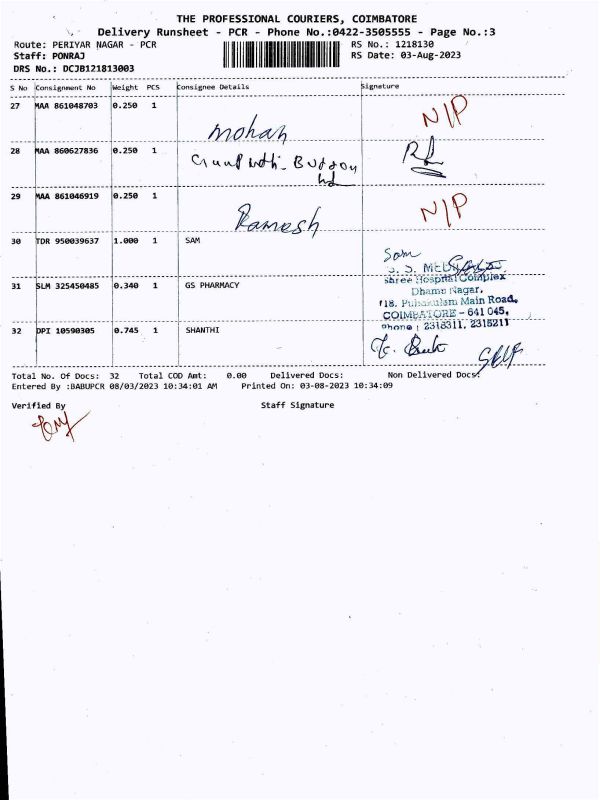 THE PROFESSIONAL COURIERS, COIMBATORE
Delivery Runsheet - PCR - Phone No.:0422-3505555 - Page No.:3
Route: PERIYAR NAGAR - PCR RS No.: 1218130
Staff: PONRAJ RS Date: 03-Aug-2023
DRS No.: DCJB121813003
S No Consignment No Weight PCS Consignee Details Signature
27 MAA 861048703 0.250 1 N/P
Mohan
28 MAA 860627836 0.250 1
29 MAA 861046919 0.250 1 N/P
Ramesh
30 TDR 950039637 1.000 1 SAM Sam
S. S.
31 SLM 325450485 0.340 1 GS PHARMACY Shree Hospital Complex
Dhamu Nagar,
118, Puliakulam Main Road,
COIMBATORE - 641 045.
32 DPI 10590305 0.745 1 SHANTHI Phone : 2318311, 2315211
Total No. Of Docs: 32 Total COD Amt: 0.00 Delivered Docs: Non Delivered Docs:
Entered By :BABUPCR 08/03/2023 10:34:01 AM Printed On: 03-08-2023 10:34:09
Verified By Staff Signature